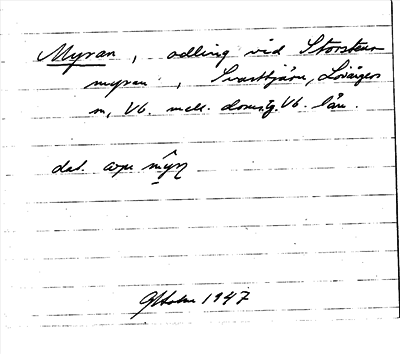 Myran, odling vid Storsten
myran, Svarttjärn, Lövånger
sn, Vb. mell. domsg. Vb. län.
dat. mŷn
GHolm 1947